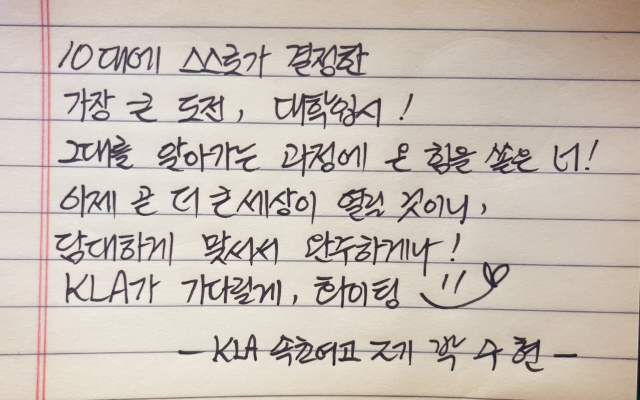 10대에 스스로가 결정한
가장 큰 도전, 대학입시!
그대를 알아가는 과정에 온 힘을 쏟은 너!
이제 곧 더 큰 세상이 열릴 것이니,
담대하게 맞서서 완주하게나!
KLA가 기다릴게, 화이팅
- KLA 속초여고 조기 박수현 -